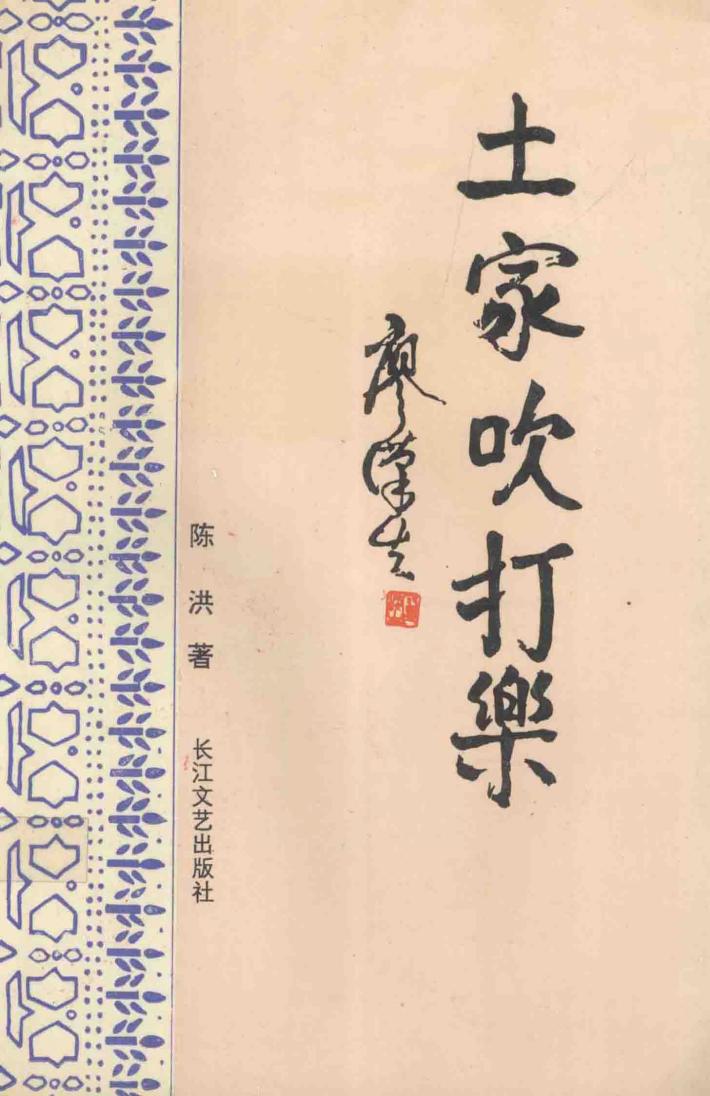 土家吹打樂
廖漢生
陈洪著
长江文艺出版社